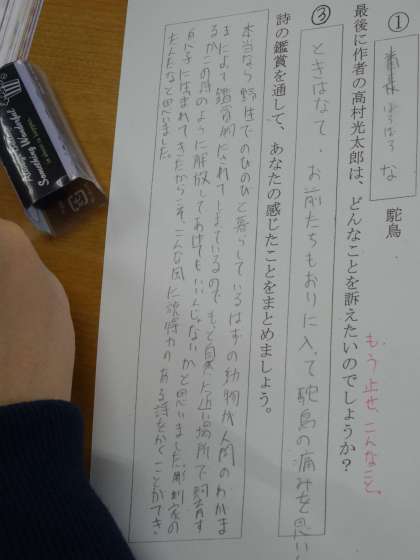 ① ぼろぼろな 駝鳥
最後に作者の高村光太郎は、どんなことを訴えたいのでしょうか？
もう止せ、こんなこと。
③ ときはなて。お前たちもおりに入って駝鳥の痛みを思い
詩の鑑賞を通して、あなたの感じたことをまとめましょう。
本当なら野生でのびのびと暮らしているはずの動物が人間のわがま
まによって鑑賞用にされてしまっているのでもっと自然に近い場所で飼育す
るかこの詩のように解放してあげてもいいんじゃないかと思いました。彫刻家の
息子に生まれてきたからこそ、こんな風に説得力のある詩をかくことができ
たんだなと思いました。
Something Wonderful